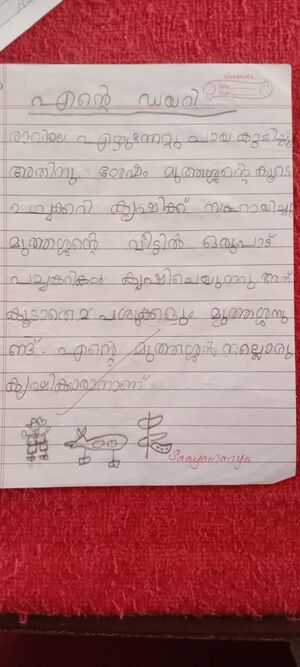 classmate
എന്റെ ഡയറി
രാവിലെ എഴുന്നേറ്റു ചായ കുടിച്ചു
അതിനു ശേഷം മുത്തശ്ശന്റെ കൂടെ
പച്ചക്കറി കൃഷിക്ക് സഹായിച്ചു
മുത്തശ്ശന്റെ വീട്ടിൽ ഒരുപാട്
പച്ചക്കറികൾ കൃഷിചെയുന്നു അത്
കൂടാതെ 2 പശുക്കളും മുത്തശ്ശനു
ണ്ട്. എന്റെ മുത്തശ്ശൻ നല്ലൊരു
കൃഷിക്കാരനാണ്.
Saayamanya